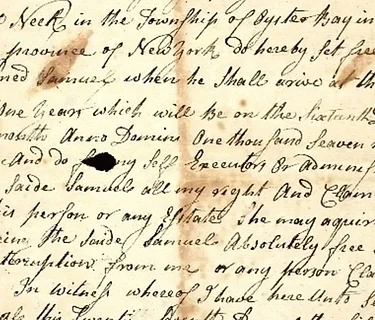 Neck in the Township of Oyster Bay in
province of New York do hereby set free
ned Samuel when he Shall arive at th
One year which will be on the Sixteenth
month Anno Domini One thousand Seaven
And do for my Self Executors Or Adminis
Saide Samuels all my right And Claim
is person or any Estate The may aquir
the Saide Samuel Absolutely free
terruption from me or any person Cla
In witness whereof I have here Unto S
this Twenti